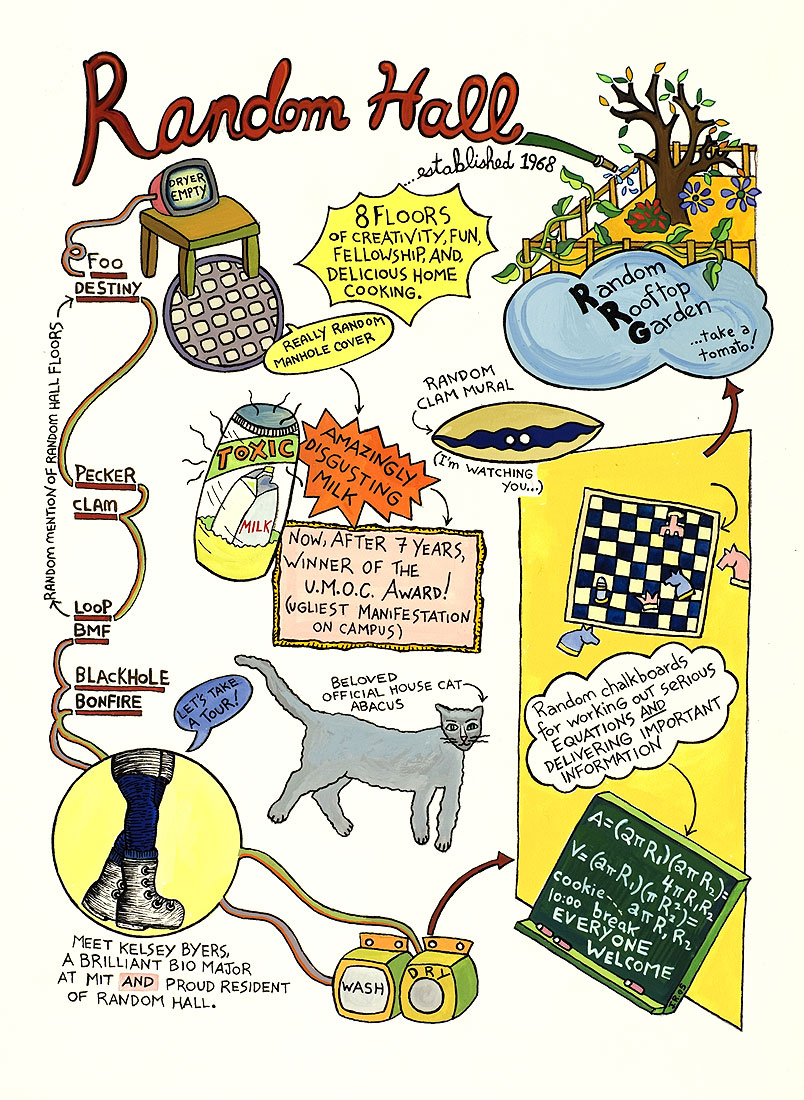 Random Hall
established 1968
DRYER
EMPTY
8 FLOORS
OF CREATIVITY, FUN,
FELLOWSHIP, AND,
DELICIOUS HOME
COOKING.
Random
Rooftop
Garden
...take a
tomato!
FOO
DESTINY
REALLY RANDOM
MANHOLE COVER
RANDOM MENTION OF RANDOM HALL FLOORS
RANDOM
CLAM MURAL
(I'm WATCHING
YOU...)
TOXIC
MILK
AMAZINGLY
DISGUSTING
MILK
PECKER
CLAM
NOW, AFTER 7 YEARS,
WINNER OF THE
U.M.O.C. AWARD!
(UGLIEST MANIFESTATION
ON CAMPUS)
LOOP
BMF
BLACKHOLE
BONFIRE
LET'S TAKE
A TOUR!
BELOVED
OFFICIAL HOUSE CAT
ABACUS
Random chalkboards
for working out serious
EQUATIONS AND
DELIVERING IMPORTANT
INFORMATION
A=(2πR₁)(2πR₂)=
4πR₁R₂
V=(2πR₁)(πR₂²)=
cookie... 2πR₁R₂
10:00 break
EVERYONE
WELCOME
MEET KELSEY BYERS,
A BRILLIANT BIO MAJOR
AT MIT AND PROUD RESIDENT
OF RANDOM HALL.
WASH
DRY